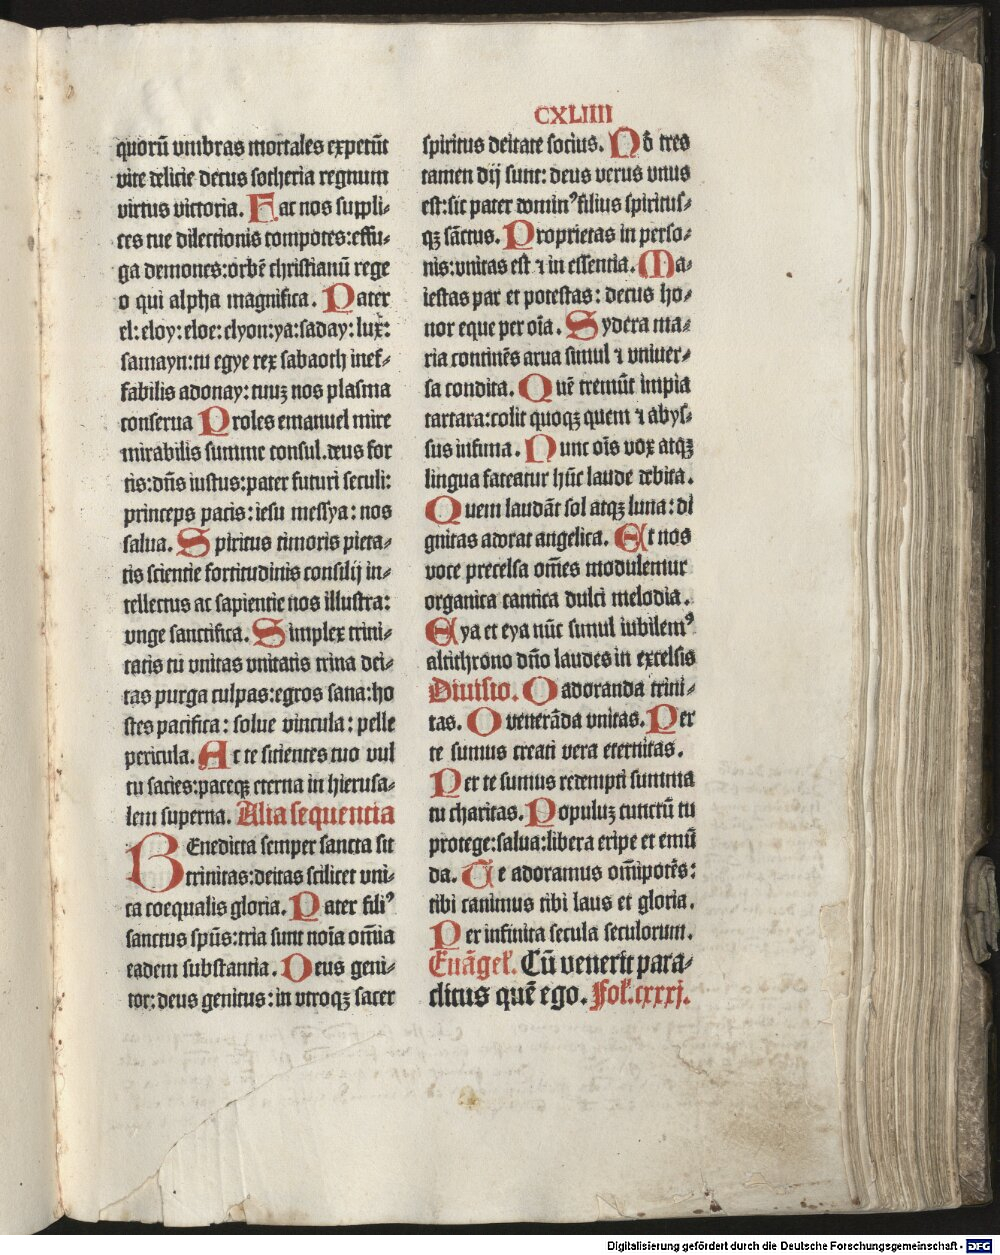 CXLIIII
quorū vmbras mortales expetūt
vite delicie decus sotheria regnum
virtus victoria. Fac nos suppli⸗
ces tue dilectionis compotes:effu⸗
ga demones:orbē christianū rege
o qui alpha magnifica. Pater
el:eloy:eloe:elyon:ya:saday:lux:
samayn:tu egye rex sabaoth inef⸗
fabilis adonay:tuuꝫ nos plasma
conserua Proles emanuel mire
mirabilis summe consul.deus for
tis:dn̄s iustus:pater futuri seculi:
princeps pacis:iesu messya:nos
salua. Spiritus timoris pieta⸗
tis scientie fortitudinis consilij in⸗
tellectus ac sapientie nos illustra:
vnge sanctifica. Simplex trini⸗
tatis tu vnitas vnitatis trina dei⸗
tas purga culpas:egros sana:ho
stes pacifica:solue vincula:pelle
pericula. Ac te sicientes tuo vul
tu sacies:paceqꝫ eterna in hierusa⸗
lem superna. Alia sequentia
BEnedicta semper sancta sit
trinitas:deitas scilicet vni⸗
ca coequalis gloria. Pater filiꝰ
sanctus spūs:tria sunt noīa om̄ia
eadem substantia. Deus geni⸗
tor:deus genitus:in vtroqꝫ sacer
spiritus deitate socius. Nō tres
tamen dij sunt:deus verus vnus
est:sic pater dominꝰ filius spiritus⸗
qꝫ sāctus. Proprietas in perso⸗
nis:vnitas est ⁊ in essentia. Ma⸗
iestas par et potestas:decus ho⸗
nor eque per oīa. Sydera ma⸗
ria continēs arua simul ⁊ vniuer⸗
sa condita. Quē tremūt impia
tartara:colit quoqꝫ quem ⁊ abys⸗
sus infima. Nunc oīs vox atqꝫ
lingua fateatur hūc laude debita.
Quem laudāt sol atqꝫ luna:di
gnitas adorat angelica. Et nos
voce precelsa om̄es modulemur
organica cantica dulci melodia.
Eya et eya nūc simul iubilemꝰ
altithrono dn̄o laudes in excelsis
Diuisio. O adoranda trini⸗
tas. O venerāda vnitas. Per
te sumus creati vera eternitas.
Per te sumus redempti summa
tu charitas. Populuꝫ cunctū tu
protege:salua:libera eripe et emū
da. Te adoramus om̄ipotēs:
tibi canimus tibi laus et gloria.
Per infinita secula seculorum.
Euāgel̄. Cū venerit para⸗
clitus quē ego. Fol̄.cxxxj.
Digitalisierung gefördert durch die Deutsche Forschungsgemeinschaft - DFG